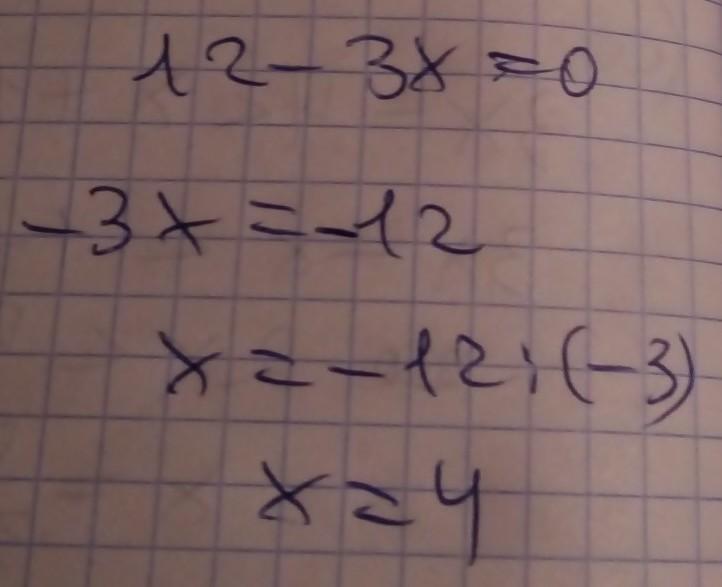 12 - 3x = 0
-3x = -12
x = -12 : (-3)
x = 4